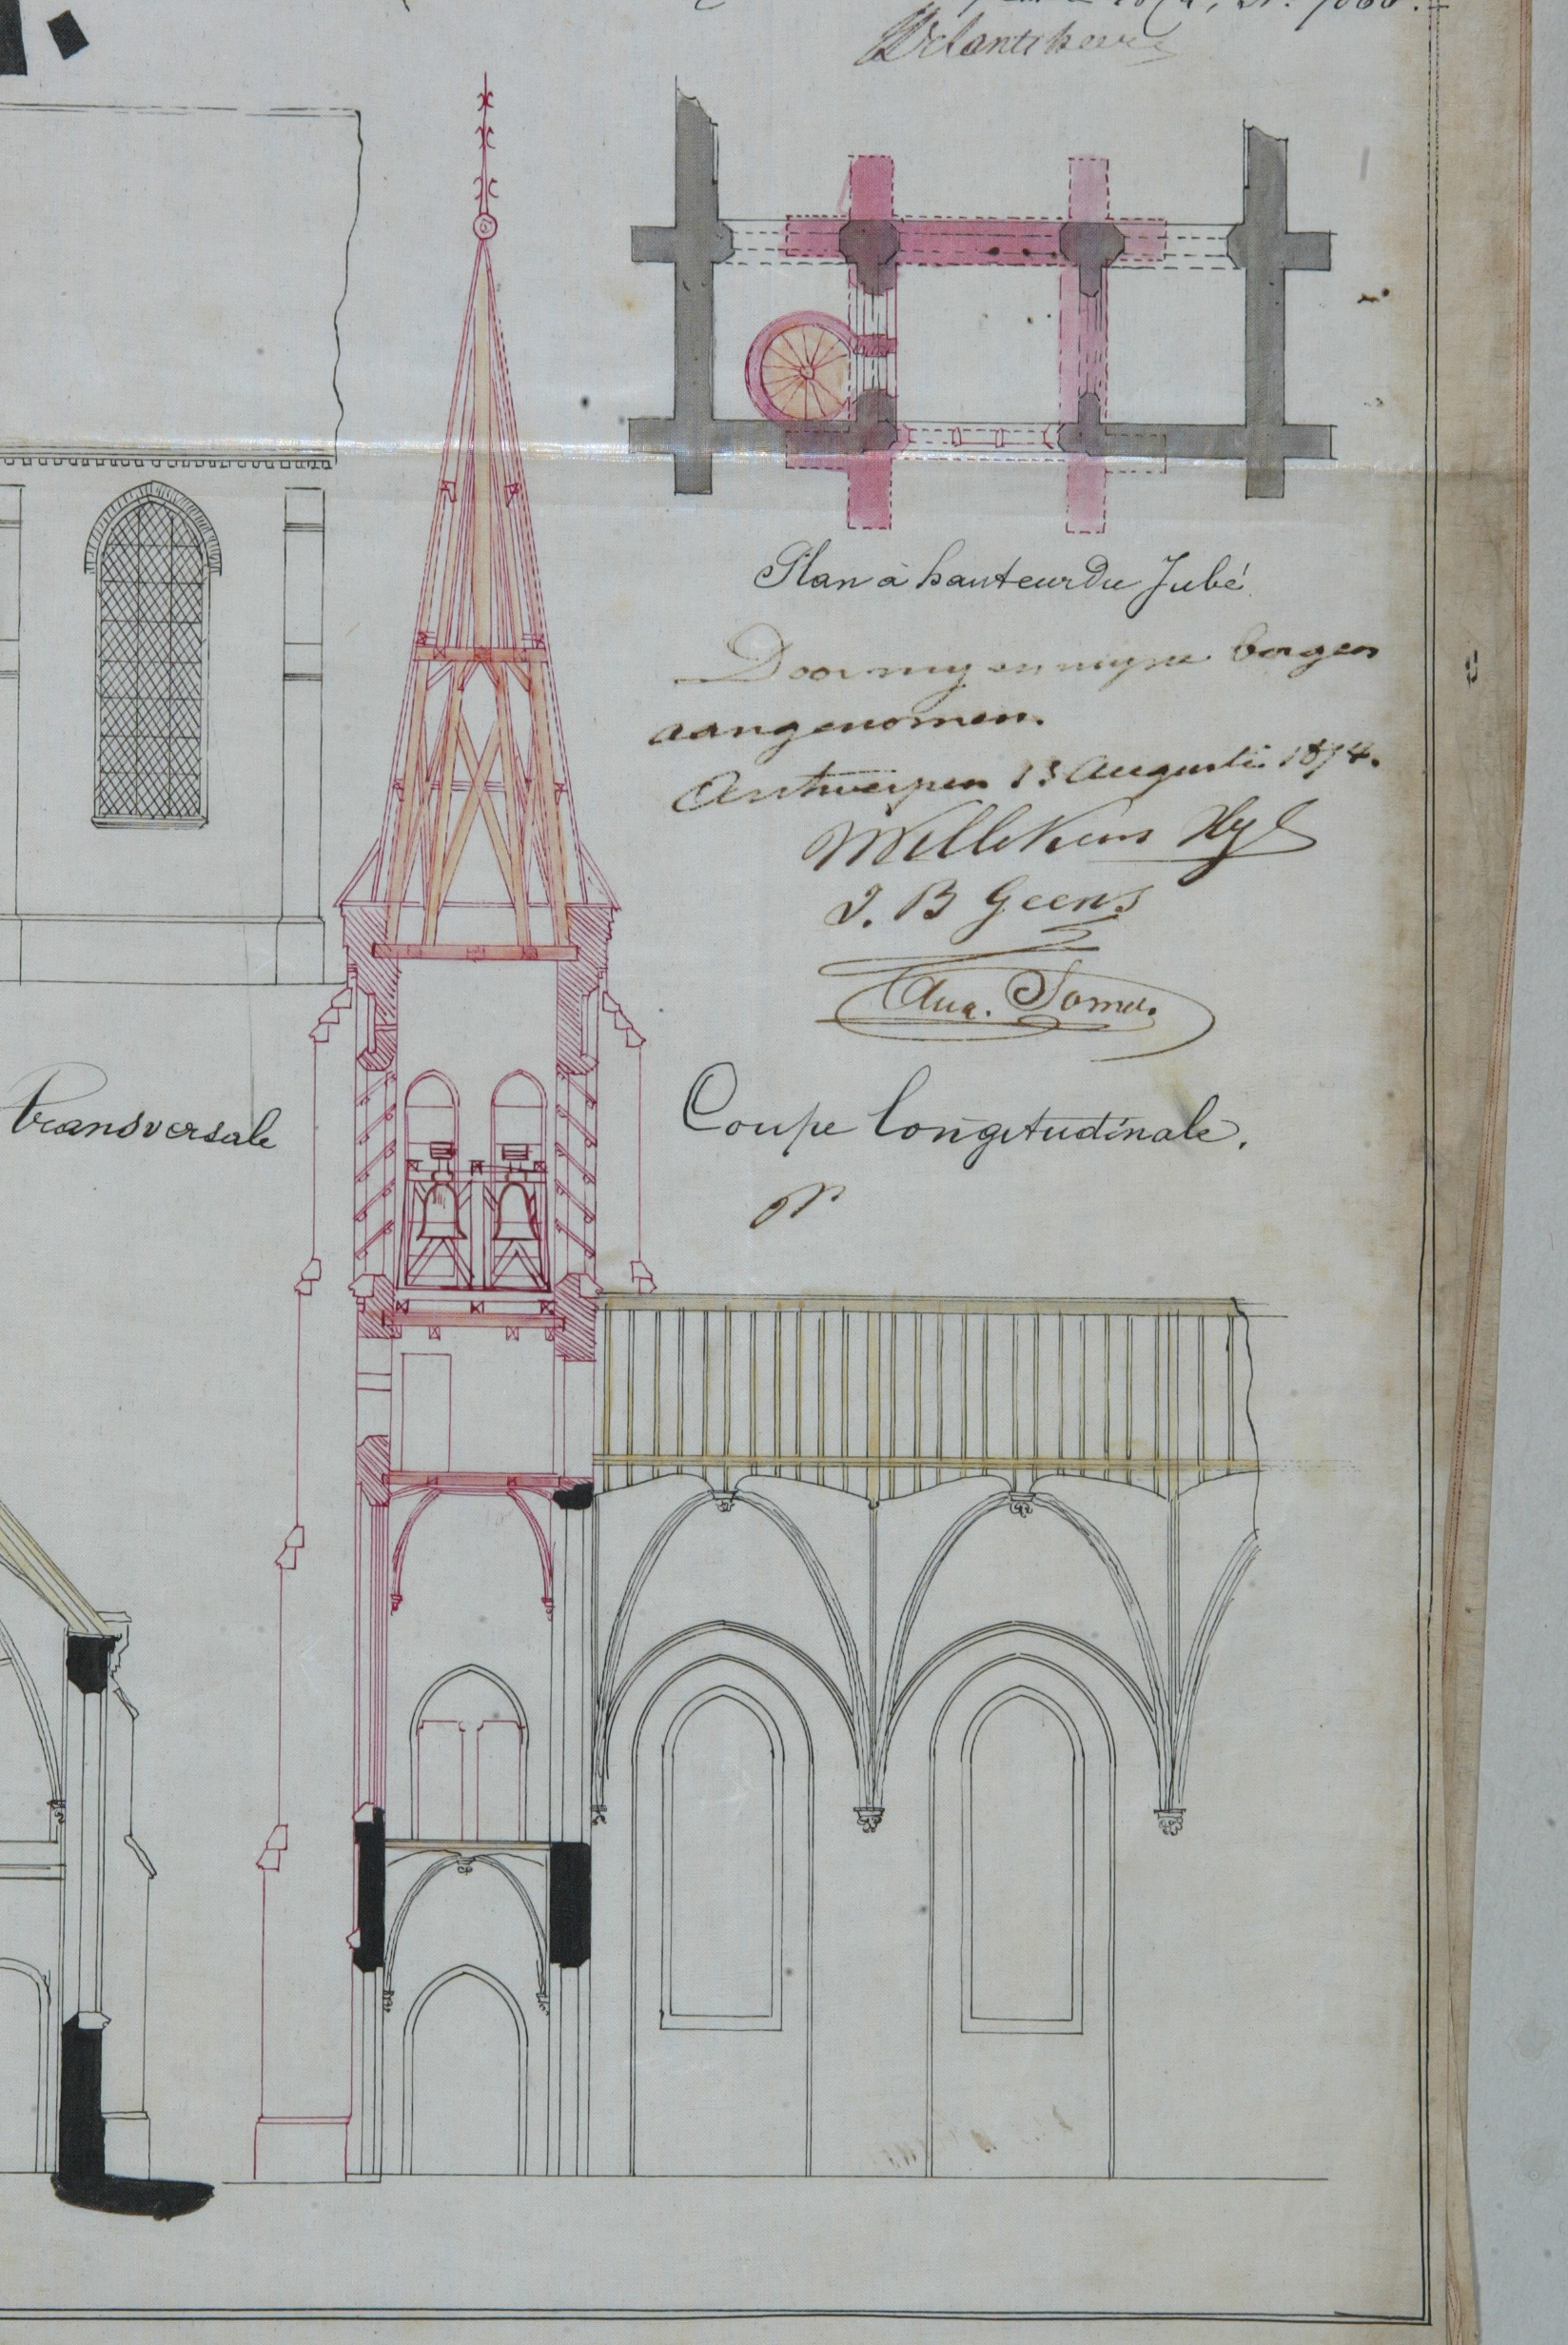 Plan à hauteur du Jubé
Door my en myne borgen
aangenomen.
Antwerpen 13 Augusti 1874.
Willekens Hy
J. B Geens
Aug. Somers
Transversale
Coupe longitudinale.